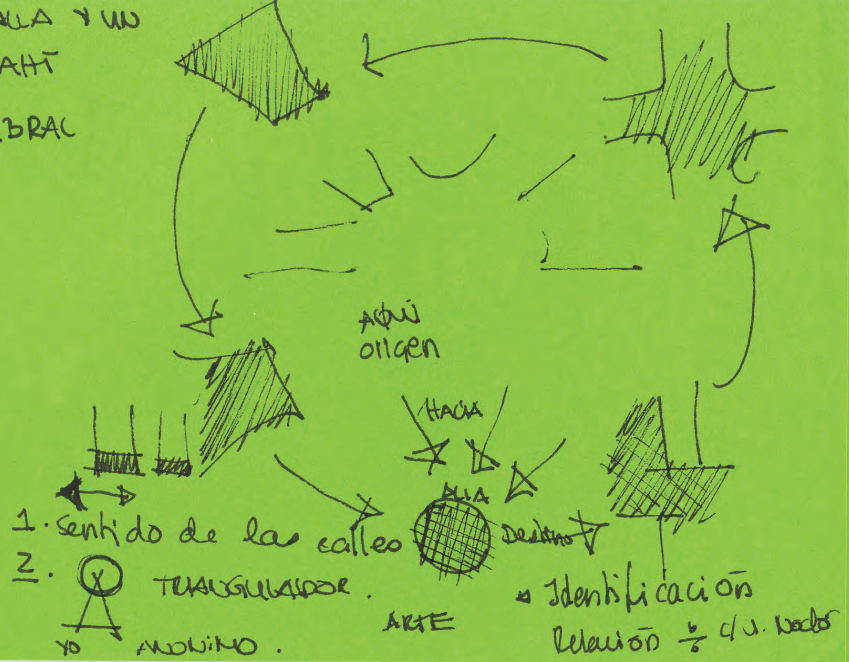 ALLA Y UN
AHÍ
BRAC
AQUÍ
origen
HACIA
ALLA
1. Sentido de las calles
Destino
2.
TRIANGULADOR.
YO
ANONIMO.
ARTE
Identificación
Relación c/u. Nodos